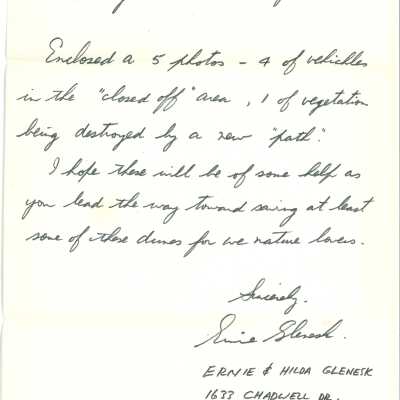 Enclosed a 5 photos - 4 of vehickles
in the "closed off" area, 1 of vegetation
being destroyed by a new "path".
I hope these will be of some help as
you lead the way toward saving at least
some of these dunes for we nature lovers.
Sincerely,
Ernie Glenesk.
ERNIE & HILDA GLENESK
1633 CHADWELL DR.